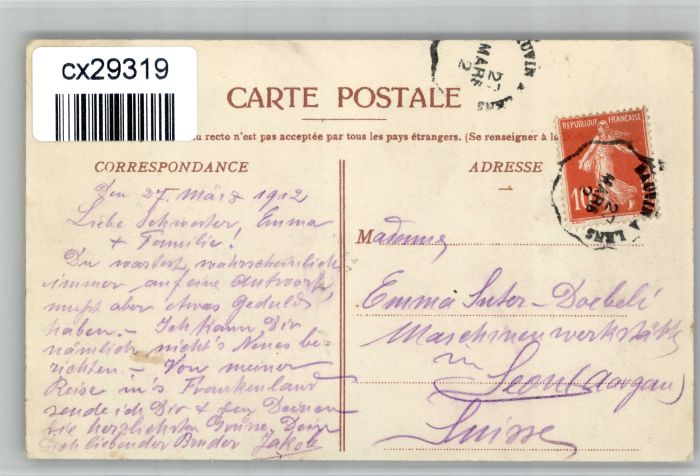 cx29319
CARTE POSTALE
du recto n'est pas acceptée par tous les pays étrangers. (Se renseigner à la
CORRESPONDANCE
Den 27. März 1912
Liebe Schwester, Emma
+ Familie!
Du wartest wahrscheinlich
immer auf eine Antwort,
mußt aber etwas Geduld
haben. – Ich kann Dir
nämlich nicht's Neues be-
richten. – Von meiner
Reise in's Frankenland
sende ich Dir + den Deinen
die herzlichsten Grüsse, Dein
Dich liebender Bruder Jakob
ADRESSE
REPUBLIQUE FRANÇAISE
10
MARS
LENS
Madame
Emma Suter-Doebeli
Maschinenwerkstätte
in Seon (Aargau)
Suisse